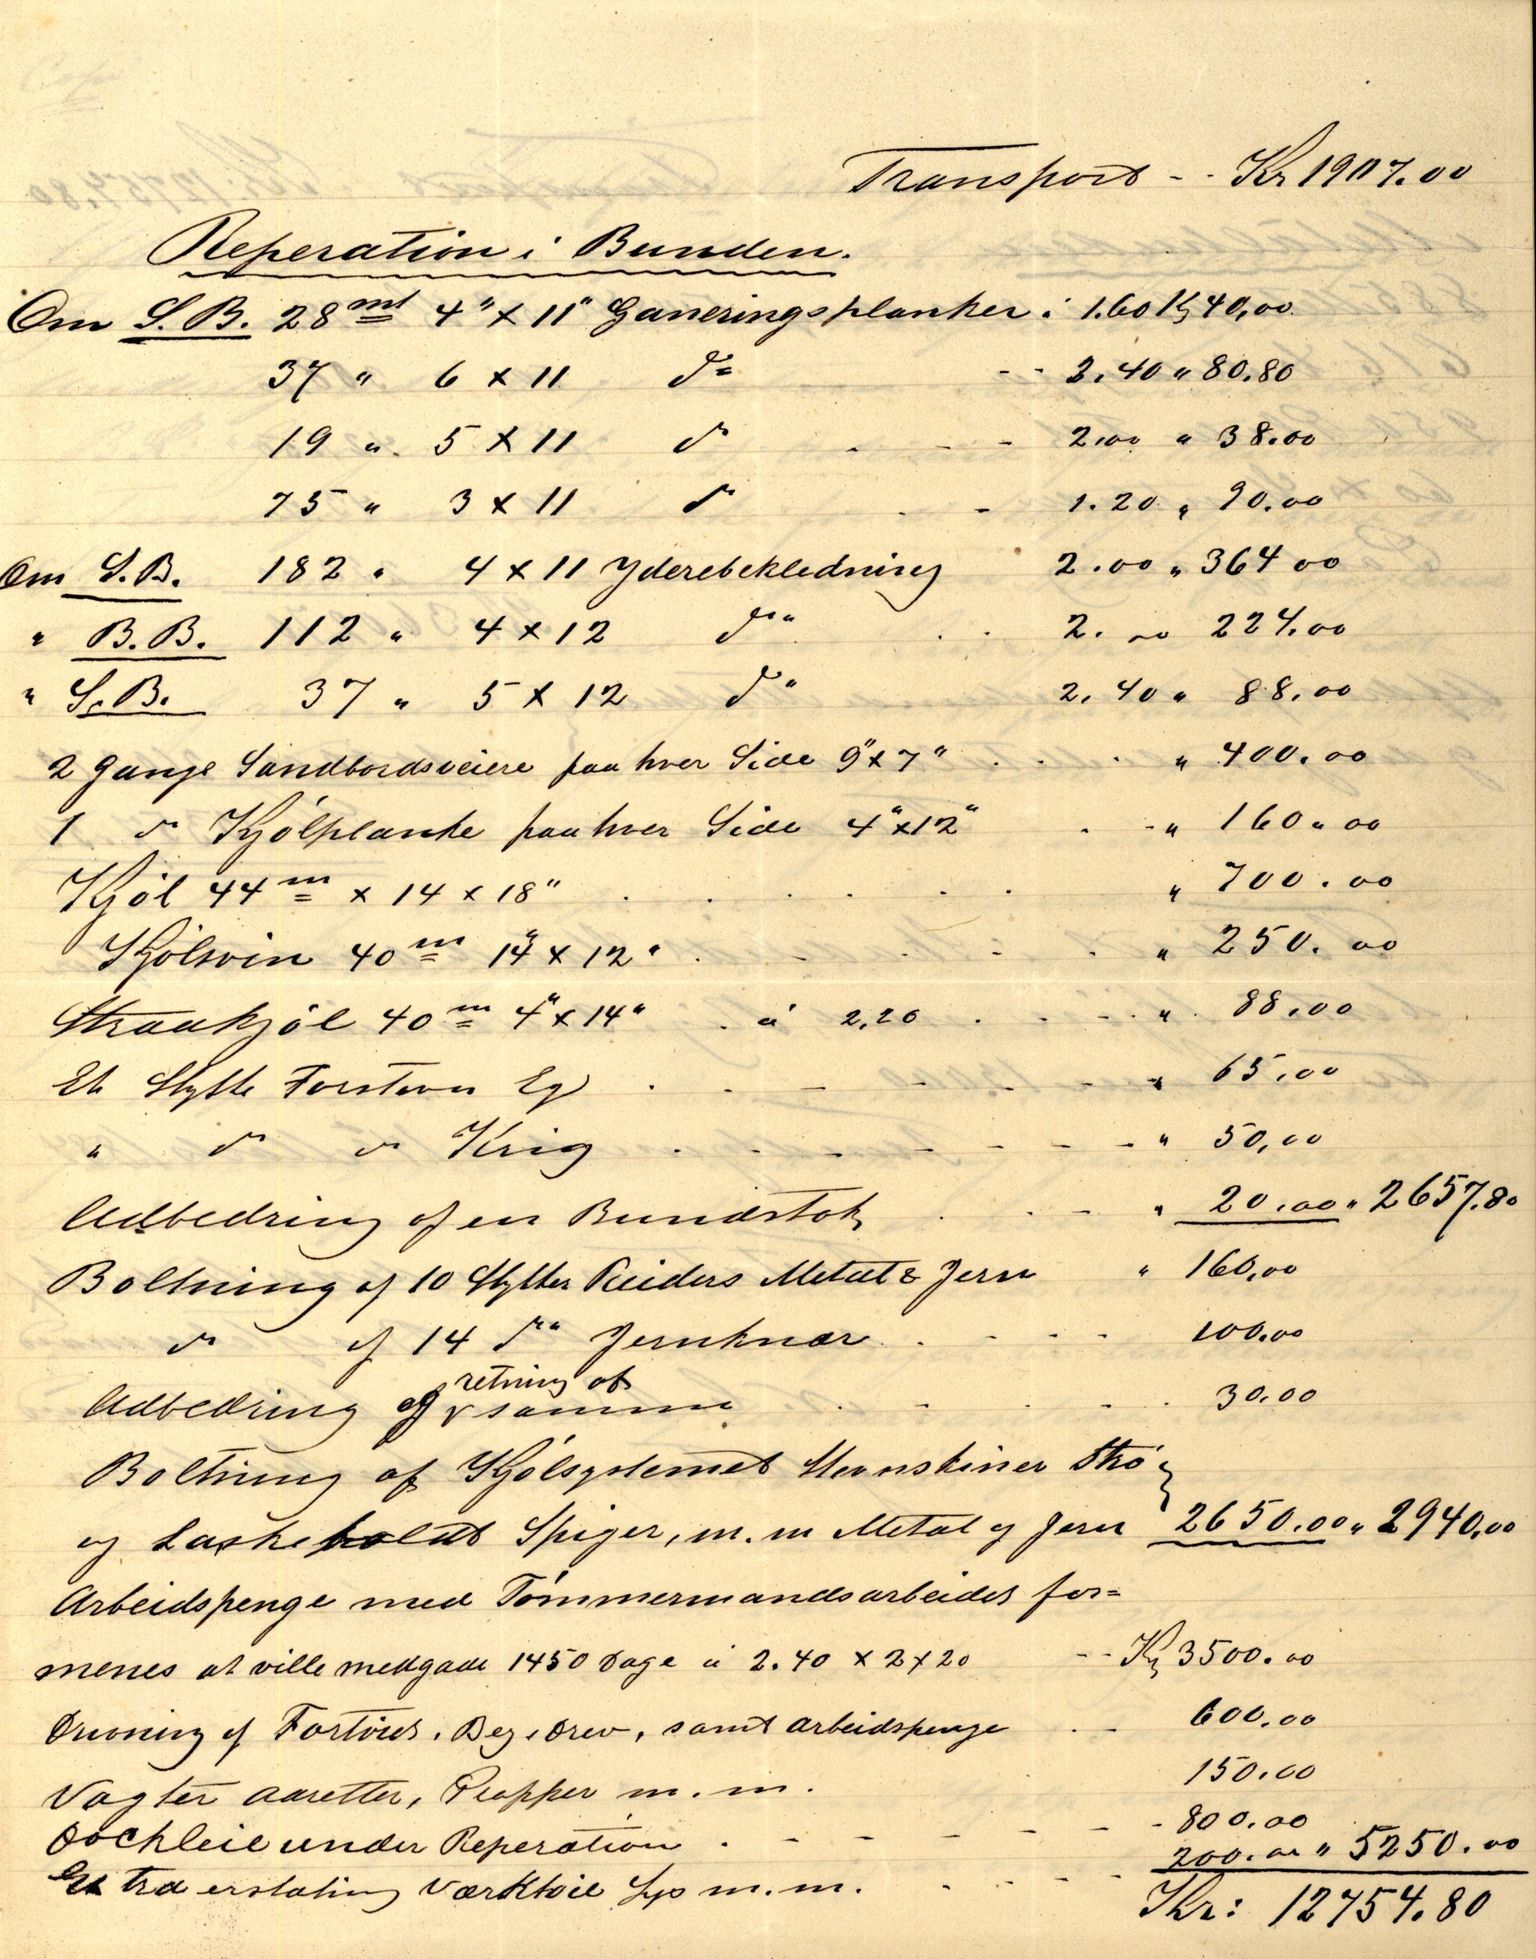 Transport - - Kr 1907.00
Reperation i Bunden.
Om S.B. 28 mt 4" x 11" Garneringsplanker i 1.60 Kr 40,00
37 " 6 x 11 do - - 2.40 " 80.80
19 " 5 x 11 do - - 2.00 " 38.00
75 " 3 x 11 do - - 1.20 " 90.00
Om S.B. 182 " 4 x 11 Yderebekledning 2.00 " 364 00
" B.B. 112 " 4 x 12 do " . . 2. " 224.00
" S.B. 37 " 5 x 12 do " 2.40 " 88.00
2 Gange Sandbordsveiere paa hver Side 9" x 7" . . . " 400.00
1 do Kjölplanke paa hver Side 4" x 12" . - " 160.00
Kjöl 44 m x 14 x 18" . . . . . . " 700.00
Kjölsvin 40 m 14" x 12" . - . - . " 250.00
Straakjöl 40 m 4" x 14" . á 2,20 . - - - " 88.00
Et Stykke Forstevn Eg . - - - - - " 65.00
" do do Krig . - - - - - " 50,00
Udbedring af en Bundstok . - - " 20.00 " 2657.80
Boltning af 10 Stykker Reiders Metal & Jern " 160,00
do af 14 do " Jernknær . - - - 100.00
Udbedring og retning af samme . - . . . 30.00
Boltning af Kjölsystemet Stevnskiner Strö
og Laskeboldt Spiger, m.m Metal og Jern 2650.00 " 2940,00
Arbeidspenge med Tömmermandsarbeidet for=
menes at ville medgaae 1450 Dage á 2.40 x 2 x 20 - - Kr 3500.00
Drivning af Fortöiet. Beg. Drev, samt Arbeidspenge . - 600.00
Vagter aaretter, Propper m.m. 150.00
Dockleie under Reperation . - - - - - - 800.00
Extra erstating Værktöie Lys m.m. . - - - - 200.00 " 5250.00
Kr: 12754.80